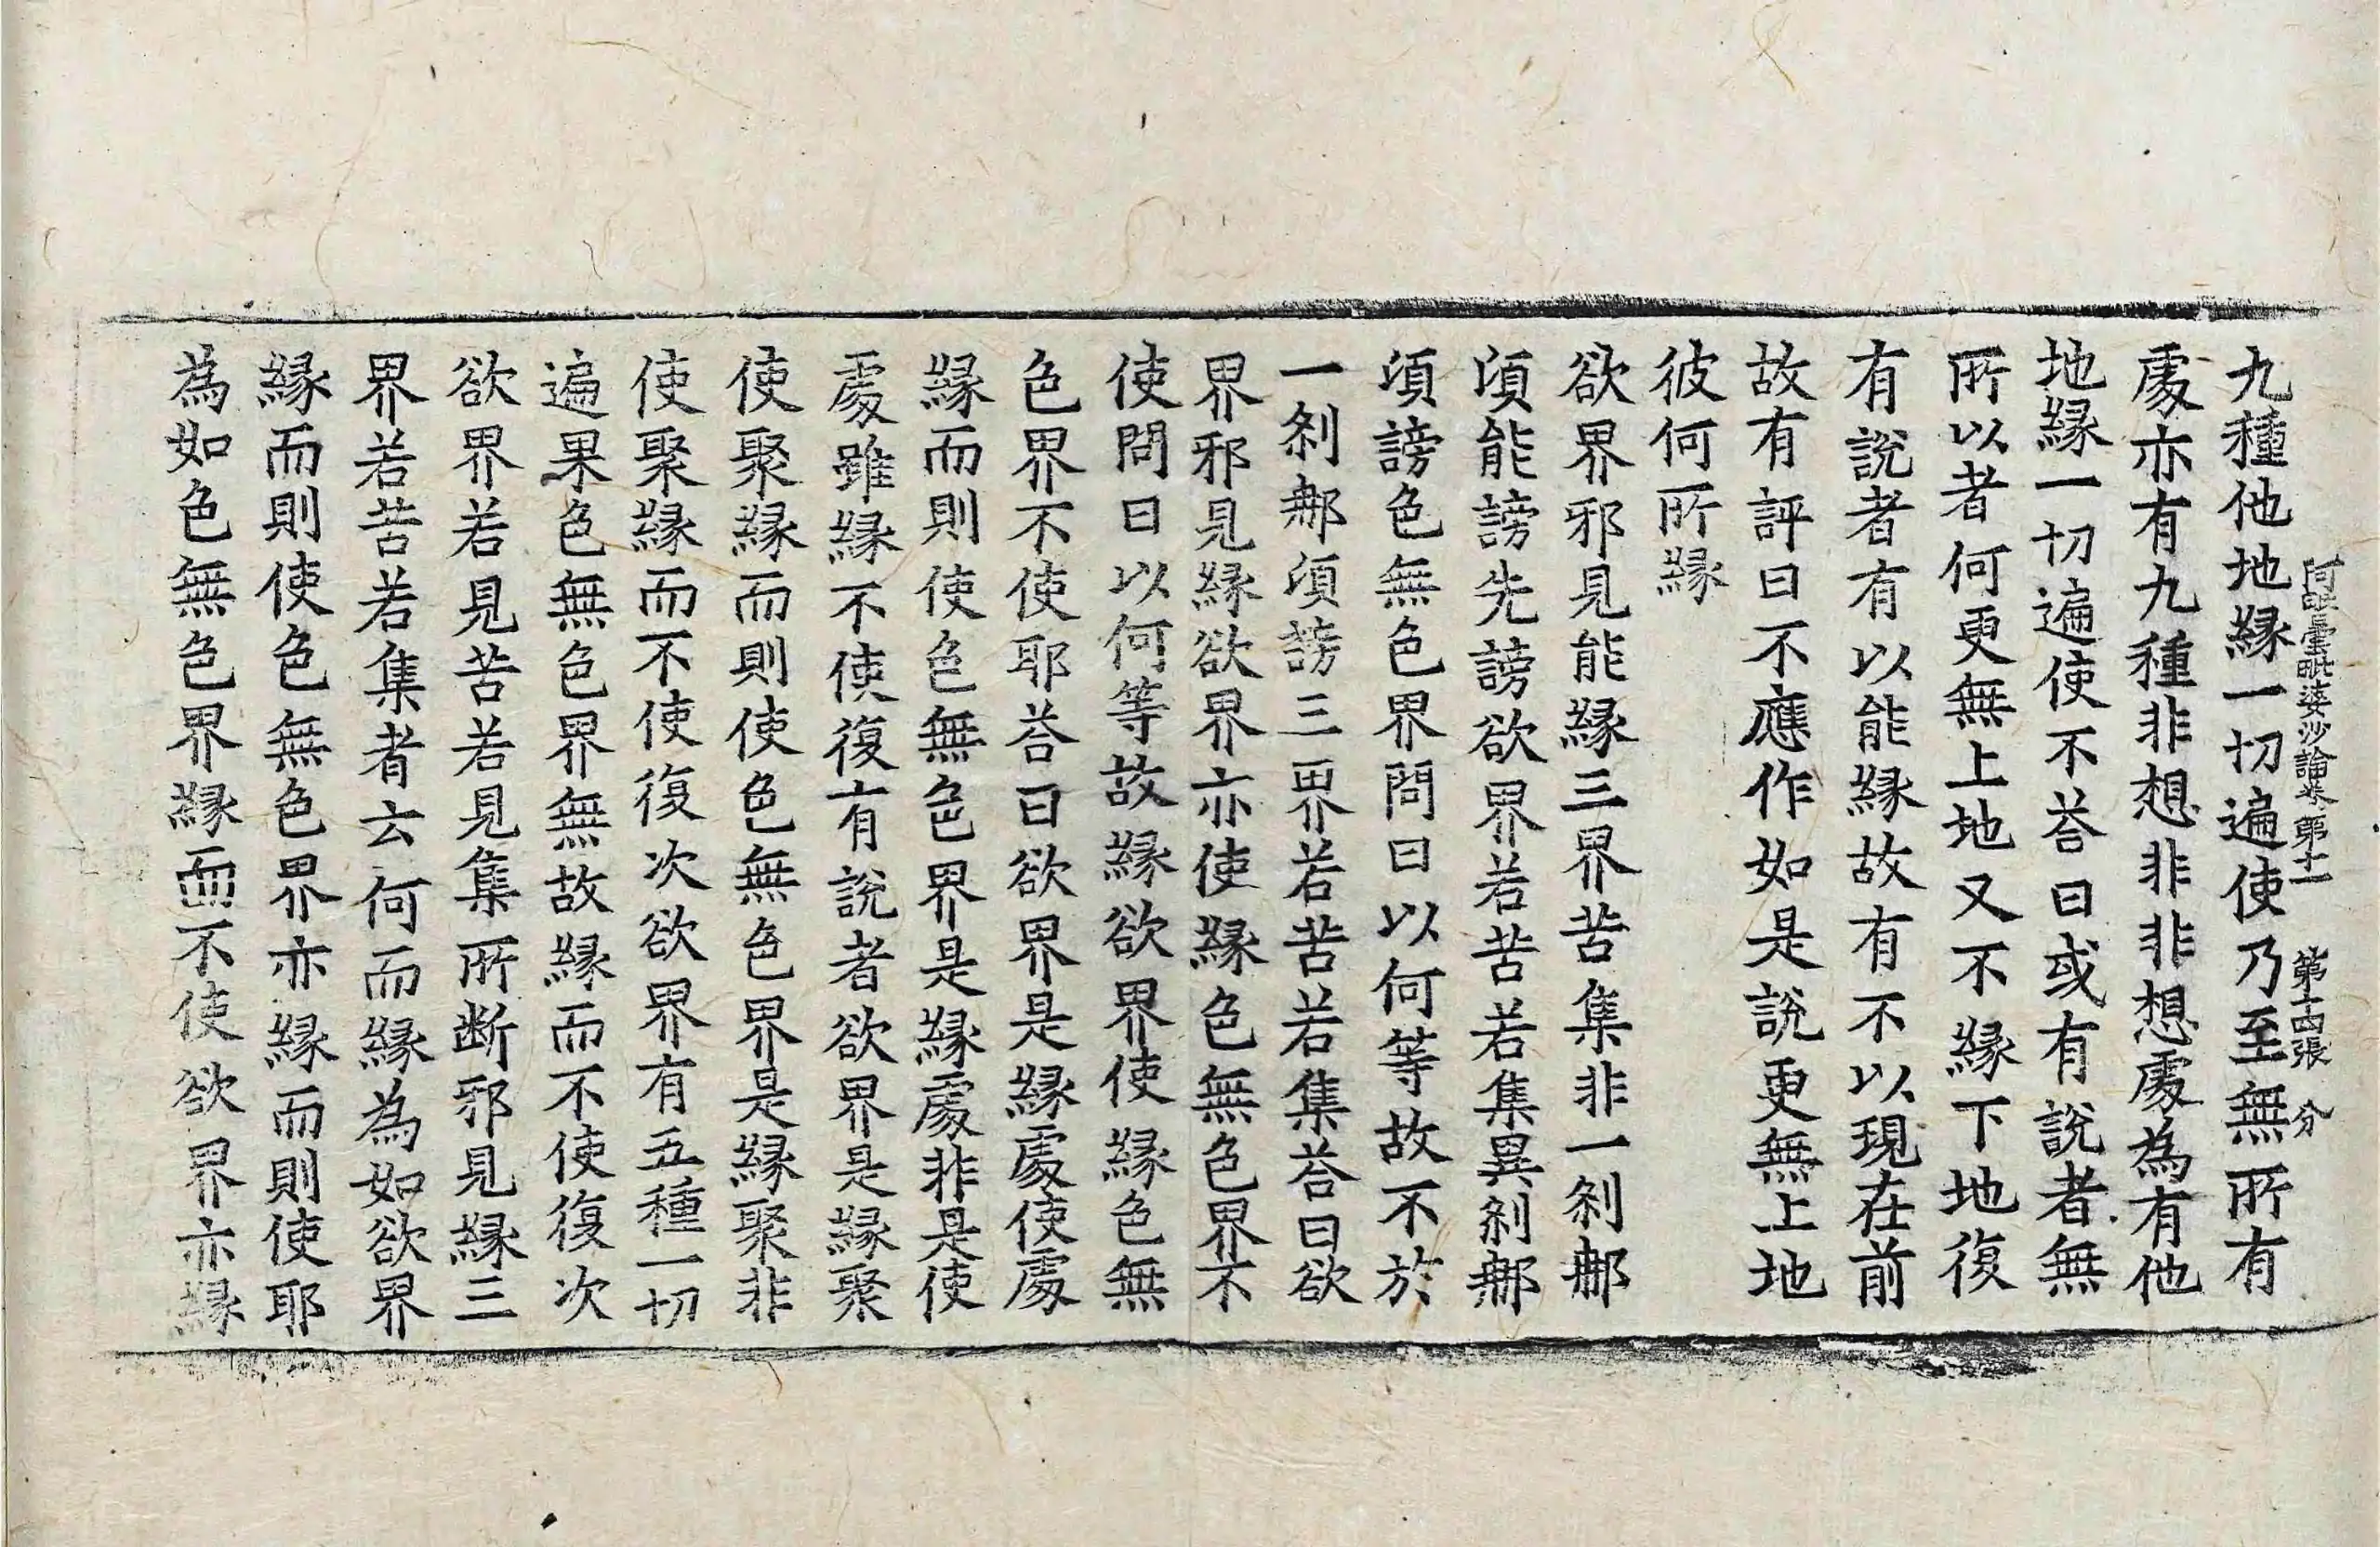 阿毗曇毗婆沙論卷第十一　第十四張　分
九種他地緣一切遍使乃至無所有
處亦有九種非想非非想處為有他
地緣一切遍使不荅曰或有說者無
所以者何更無上地又不緣下地復
有說者有以能緣故有不以現在前
故有評曰不應作如是說更無上地
彼何所緣
欲界邪見能緣三界苦集非一剎那
湏能謗先謗欲界若苦若集異剎那
湏謗色無色界問曰以何等故不於
一剎那湏謗三界若苦若集荅曰欲
界邪見緣欲界亦使緣色無色界不
使問曰以何等故緣欲界使緣色無
色界不使耶荅曰欲界是緣處使處
緣而則使色無色界是緣處非是使
處雖緣不使復有說者欲界是緣聚
使聚緣而則使色無色界是緣聚非
使聚緣而不使復次欲界有五種一切
遍果色無色界無故緣而不使復次
欲界若見苦若見集所断邪見緣三
界若苦若集者云何而緣為如欲界
緣而則使色無色界亦緣而則使耶
為如色無色界緣而不使欲界亦緣